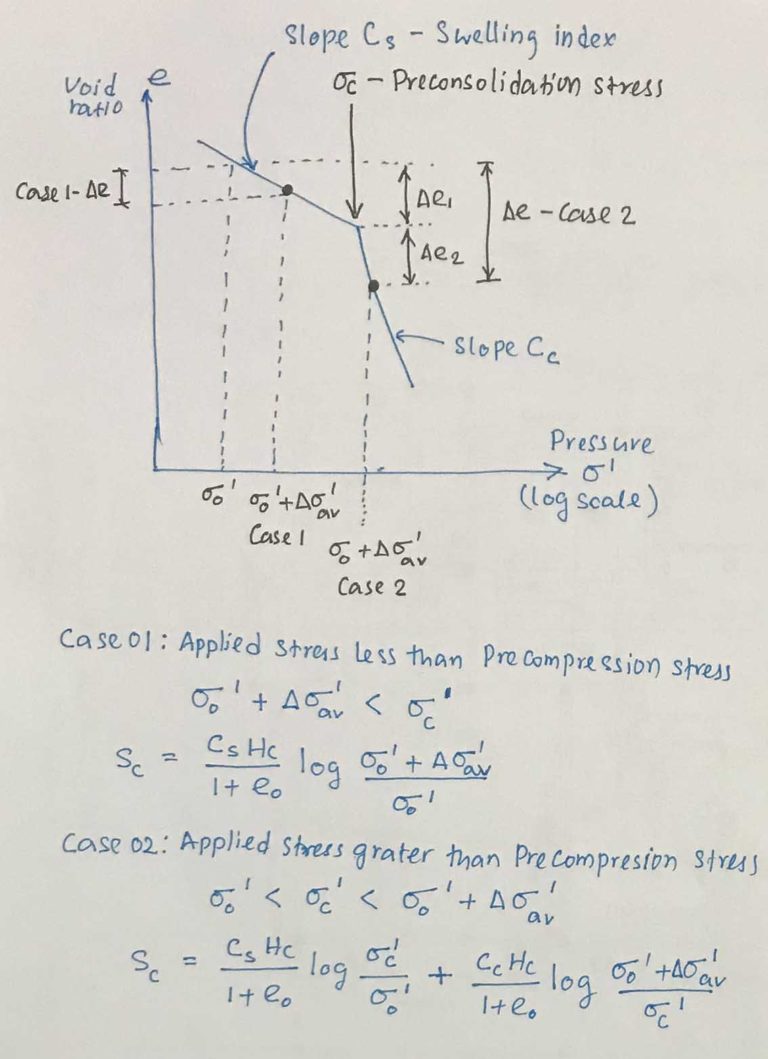 Slope Cs - Swelling index
σc - Preconsolidation stress
Void ratio
e
Case 1 - Δe
Δe₁
Δe - Case 2
Δe₂
Slope Cc
Pressure
σ'
(log scale)
σ₀' σ₀' + Δσ'av
Case 1
σ₀ + Δσ'av
Case 2
Case 01: Applied stress less than Precompression stress
σ₀' + Δσ'av < σc'
Sc = Cs Hc / 1 + e₀ log σ₀' + Δσ'av / σ₀'
Case 02: Applied stress grater than Precompresion stress
σ₀' < σc' < σ₀' + Δσ'av
Sc = Cs Hc / 1 + e₀ log σc' / σ₀' + Cc Hc / 1 + e₀ log σ₀' + Δσ'av / σc'